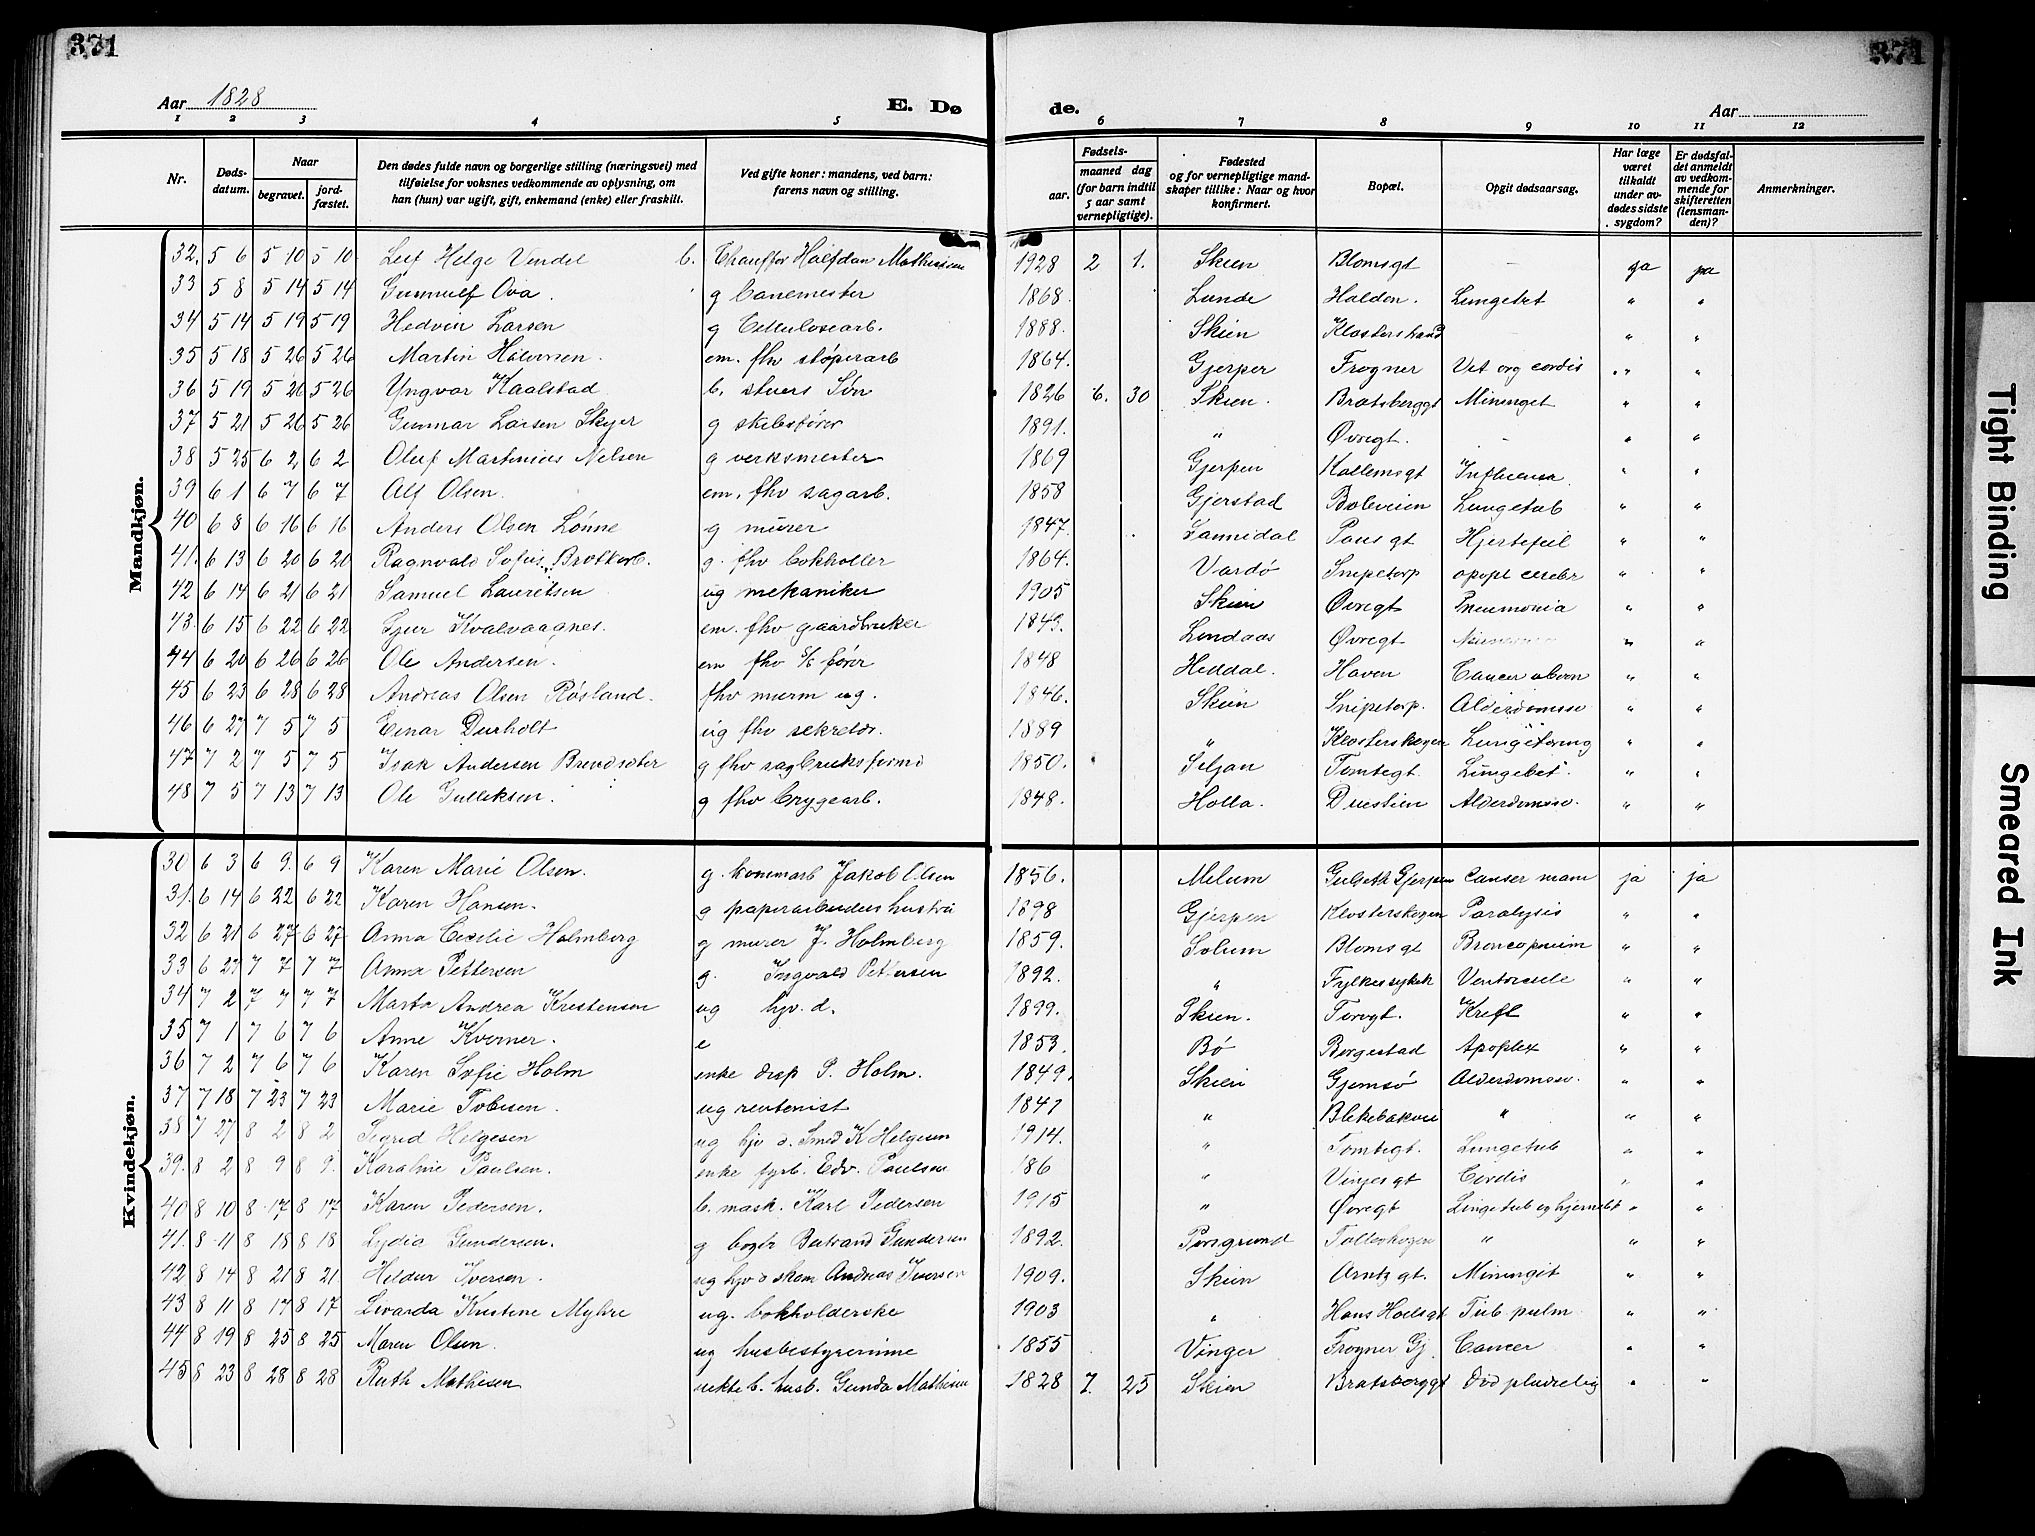 371 371
Aar 1828 E. Dø de. Aar
1 2 3 4 5 6 7 8 9 10 11 12
Nr. Døds-datum. Naar begravet. jord-fæstet. Den dødes fulde navn og borgerlige stilling (næringsvei) med tilføielse for voksnes vedkommende av oplysning, om han (hun) var ugift, gift, enkemand (enke) eller fraskilt. Ved gifte koner: mandens, ved barn: farens navn og stilling. Fødsels- aar. maaned dag (for barn indtil 5 aar samt vernepligtige). Fødested og for vernepligtige mandskaper tillike: Naar og hvor konfirmert. Bopæl. Opgit dødsaarsag. Har læge været tilkaldt under avdødes sidste sygdom? Er dødsfaldet anmeldt av vedkommende for skifteretten (lensmanden)? Anmerkninger.
Mandkjøn.
32. 5 6 5 10 5 10 Leif Helge Vendel b. Chauffør Halfdan Mathisen 1928 2 1. Skien Blomsgt - ja ja
33 5 8 5 14 5 14 Gunnulf Ova. g banemester 1868. Lunde Halden. Lungebet " "
34 5 14 5 19 5 19 Hedvin Larsen g Cellulosearb. 1888. Skien Klosterstrand - " "
35 5 18 5 26 5 26 Martin Halvorsen. em. fhv støperarb 1864. Gjerpen Frogner Vit org cordis " "
36 5 19 5 26 5 26 Yngvar Kaalstad b. stuers Søn 1826 6. 30 Skien. Bratsberggt Mininget " "
37 5 21 5 26 5 26 Gunnar Larsen Skyer g skibsfører 1891. " Øvregt. - " "
38 5 25 6 2 6 2 Oluf Martinius Nelsen g verksmester 1869 Gjerpen Kallemsgt Influensa " "
39 6 1 6 7 6 7 Alf Olsen. em. fhv sagarb. 1858 Gjerstad Boleveien Lungetub " "
40 6 8 6 16 6 16 Anders Olsen Lønne g murer 1847. Sannidal Pausgt Hjertefeil " "
41. 6 13 6 20 6 20 Ragnvald Sofus g. fhv bokholler 1864. Vardø Snipetorp apopl cerebr " "
42 6 14 6 21 6 21 Samuel Lauritsen ug mekaniker 1905 Skien Øvregt Pneumonia " "
43. 6 15 6 22 6 22 Sjur Kvalvaagnes. em. fhv gaardbruker 1843. Lindaas Øvregt " "
44 6 20 6 26 6 26 Ole Andersen. em fhv S/S fører 1848 Heddal. Haven Cancer " "
45 6 23 6 28 6 28 Andreas Olsen Røsland. fhv murm ug. 1846. Skien Snipetorp. Alderdomssv " "
46 6 27 7 5 7 5 Einar Durholt ug fhv sekretær. 1889 " Klosterskogen Lungetæring " "
47 7 2 7 5 7 5 Isak Andersen Brendsæter g fhv sagbruksformd 1850. Siljan Tomtegt. Lungebet. " "
48 7 5 7 13 7 13 Ole Gulliksen. g fhv brygearb. 1848. Holla. Duestien Alderdomssv. " "
Kvindekjøn.
30 6 3 6 9. 6 9 Karen Marie Olsen. g. kommarb Jakob Olsen 1856. Melum Gulseth Gjerpen canser mam ja ja
31. 6 14 6 22 6 22 Karen Hansen. g papirarbeiders hustru 1898 Gjerpen Klosterskogen Paralysis " "
32 6 21 6 27 6 27 Anna Cecilie Holmberg g murer J. Holmberg 1859. Solum Blomsgt Broncopneum " "
33 6 27 7 7 7 7 Anna Pettersen g. Ingvald Pettersen 1892. " Fylkessykeh " "
34 7 2 7 7 7 7 Marta Andrea Kristensen ug hjv. d. 1899. Skien. Torvgt. Kreft " "
35 7 1 7 6 7 6 Anne Kverner. e 1853. Bø Borgestad Apoplex " "
36 7 2 7 6 7 6 Karen Sofie Holm enke disp P. Holm. 1849. Skien Gjemsø Alderdomssv. " "
37 7 18 7 23 7 23 Marie Tobisen. ug rentenist 1847 " Blekebakvei " " "
38 7 27 8 2 8 2 Sigrid Helgesen ug hjv d. Smed K Helgesen 1914. " Tomtegt. Lungetub " "
39. 8 2 8 9 8 9. Karaline Paulsen. enke fyrb. Edv. Paulsen 186 " Vinjesgt Cordis " "
40 8 10 8 17 8 17 Karen Pedersen. b. mask. Karl Pedersen 1915 " Øvregt Lungetub og hjernebet " "
41. 8 11 8 18 8 18 Lydia Gundersen. g bogtr Bertrand Gundersen 1892. Porsgrund Falleskogen " " "
42 8 14 8 21 8 21. Heldur Iversen. ug hjv d skom Andreas Iversen 1909. Skien Arntzgt. Miningit " "
43 8 11 8 17 8 17. Livarda Kristine Myhre ug. bokholderske 1903 " Hans Hoelsgt Tub pulm " "
44 8 19 8 25 8 25 Maren Olsen. ug husbestyrerinne 1855 Vinger Frogner Gj. Cancer " "
45 8 23 8 28 8 28 Ruth Mathisen uekte b. husb. Gunda Mathisen 1828 7. 25 Skien Bratsberggt Død pludselig " "
Tight Binding
Smeared Ink